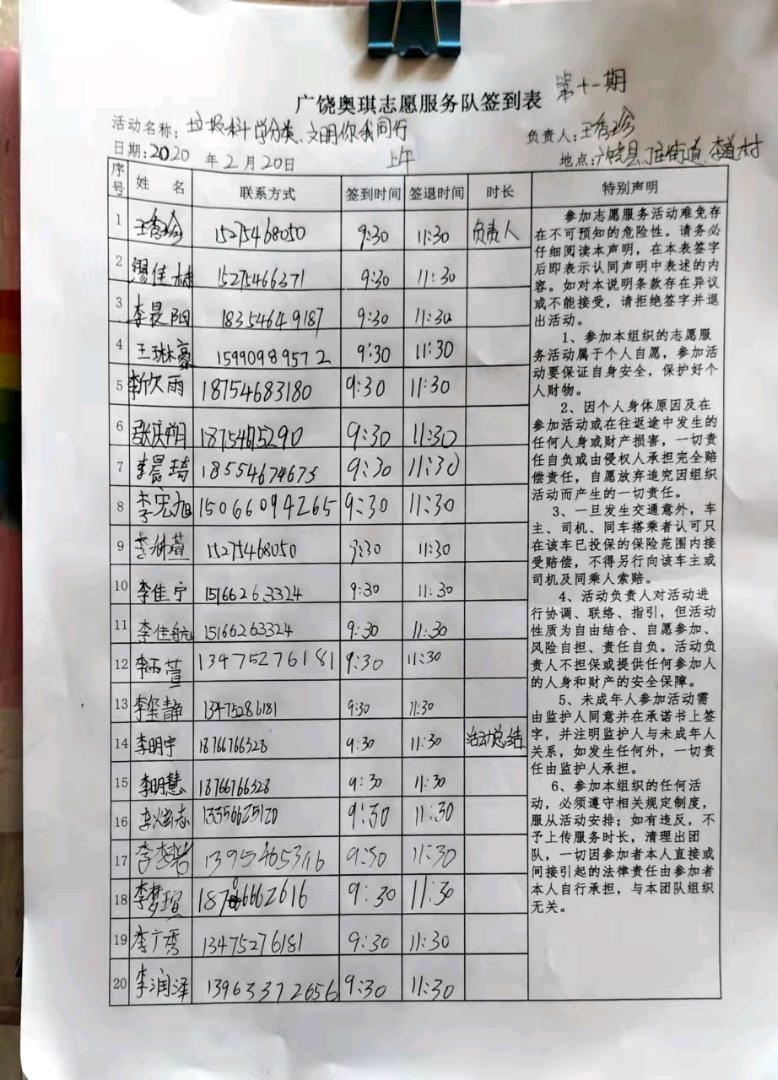 广饶奥琪志愿服务队签到表 第十一期
活动名称：垃圾科学分类、文明你我同行 负责人：王秀珍
日期：2020年2月20日 上午 地点：广饶县 街道 李 村
序号 姓名 联系方式 签到时间 签退时间 时长 特别声明
1 王秀珍 15275468050 9:30 11:30 负责人
2 佳 15275466371 9:30 11:30
3 李晨阳 18354649187 9:30 11:30
4 王琳豪 15990989572 9:30 11:30
5 李欣雨 18754683180 9:30 11:30
6 张庆明 18754675290 9:30 11:30
7 李晨琦 18554674675 9:30 11:30
8 李宏旭 15066094265 9:30 11:30
9 李 萱 15275468050 9:30 11:30
10 李佳宁 15166263324 9:30 11:30
11 李佳航 15166263324 9:30 11:30
12 李雨萱 13475276181 9:30 11:30
13 李 静 13475286181 9:30 11:30
14 李明宇 18766766328 9:30 11:30 活动总结
15 李明慧 18766766328 9:30 11:30
16 李 志 13356625120 9:30 11:30
17 李 岩 13954653116 9:30 11:30
18 李梦瑄 9:30 11:30
19 李广秀 13475276181 9:30 11:30
20 李润泽 13963372656 9:30 11:30
参加志愿服务活动难免存
在不可预知的危险性。请务必
仔细阅读本声明，在本表签字
后即表示认同声明中表述的内
容。如对本说明条款存在异议
或不能接受，请拒绝签字并退
出活动。
1、参加本组织的志愿服
务活动属于个人自愿，参加活
动要保证自身安全，保护好个
人财物。
2、因个人身体原因及在
参加活动或在往返途中发生的
任何人身或财产损害，一切责
任自负或由侵权人承担完全赔
偿责任，自愿放弃追究因组织
活动而产生的一切责任。
3、一旦发生交通意外，车
主、司机、同车搭乘者认可只
在该车已投保的保险范围内接
受赔偿，不得另行向该车主或
司机及同乘人索赔。
4、活动负责人对活动进
行协调、联络、指引，但活动
性质为自由结合、自愿参加、
风险自担、责任自负。活动负
责人不担保或提供任何参加人
的人身和财产的安全保障。
5、未成年人参加活动需
由监护人同意并在承诺书上签
字，并注明监护人与未成年人
关系，如发生任何外，一切责
任由监护人承担。
6、参加本组织的任何活
动，必须遵守相关规定制度，
服从活动安排；如有违反，不
予上传服务时长，清理出团
队，一切因参加者本人直接或
间接引起的法律责任由参加者
本人自行承担，与本团队组织
无关。